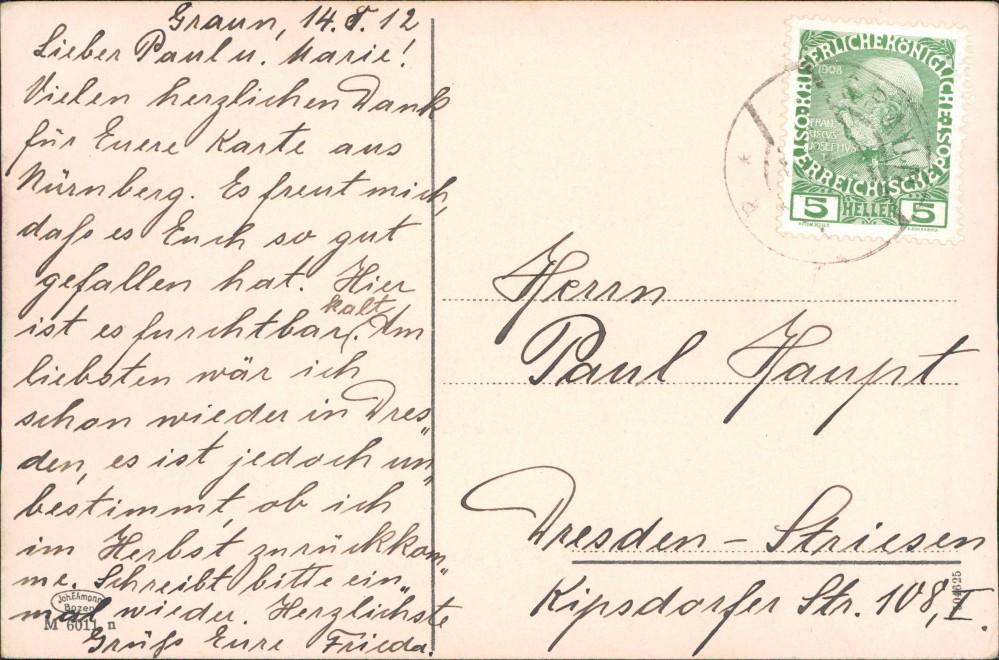 Graun, 14. 8. 12
Lieber Paul u. Marie!
Vielen herzlichen Dank
für Euere Karte aus
Nürnberg. Es freut mich,
daſs es Euch so gut
gefallen hat. Hier
kalt
ist es furchtbar. Am
liebsten wär ich
schon wieder in Dres„
den, es ist jedoch un„
bestimmt, ob ich
im Herbst zurückkom„
me. Schreibt bitte ein„
mal wieder. Herzlichste
Grüſs Eure Frieda.
Joh.F.Amonn
Bozen
M 6011 n
KAISERLICHE KÖNIGLICHE ÖSTERREICHISCHE POST
1908
FRAN-
CISCVS
JOSEPHVS I
5 HELLER 5
Herrn
Paul Haupt
Dresden - Striesen
Kipsdorfer Str. 108, II.